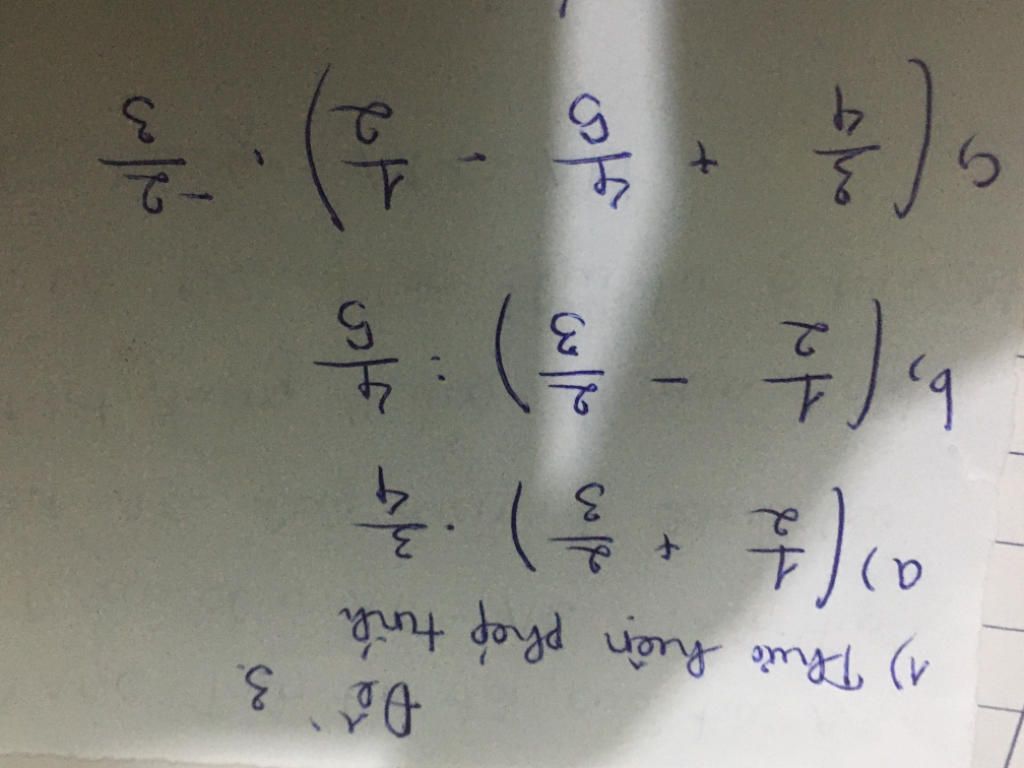 Đề 3.
1) Thực hiện phép tính
a) (1/2 + 2/3) . 3/4
b, (1/2 - 2/3) : 4/5
c, (3/4 + 4/5 - 1/2) . -2/3